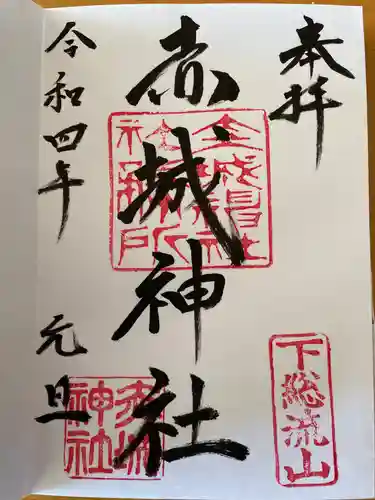 奉拝
下総流山
赤城神社
令和四年 元旦
赤城神社